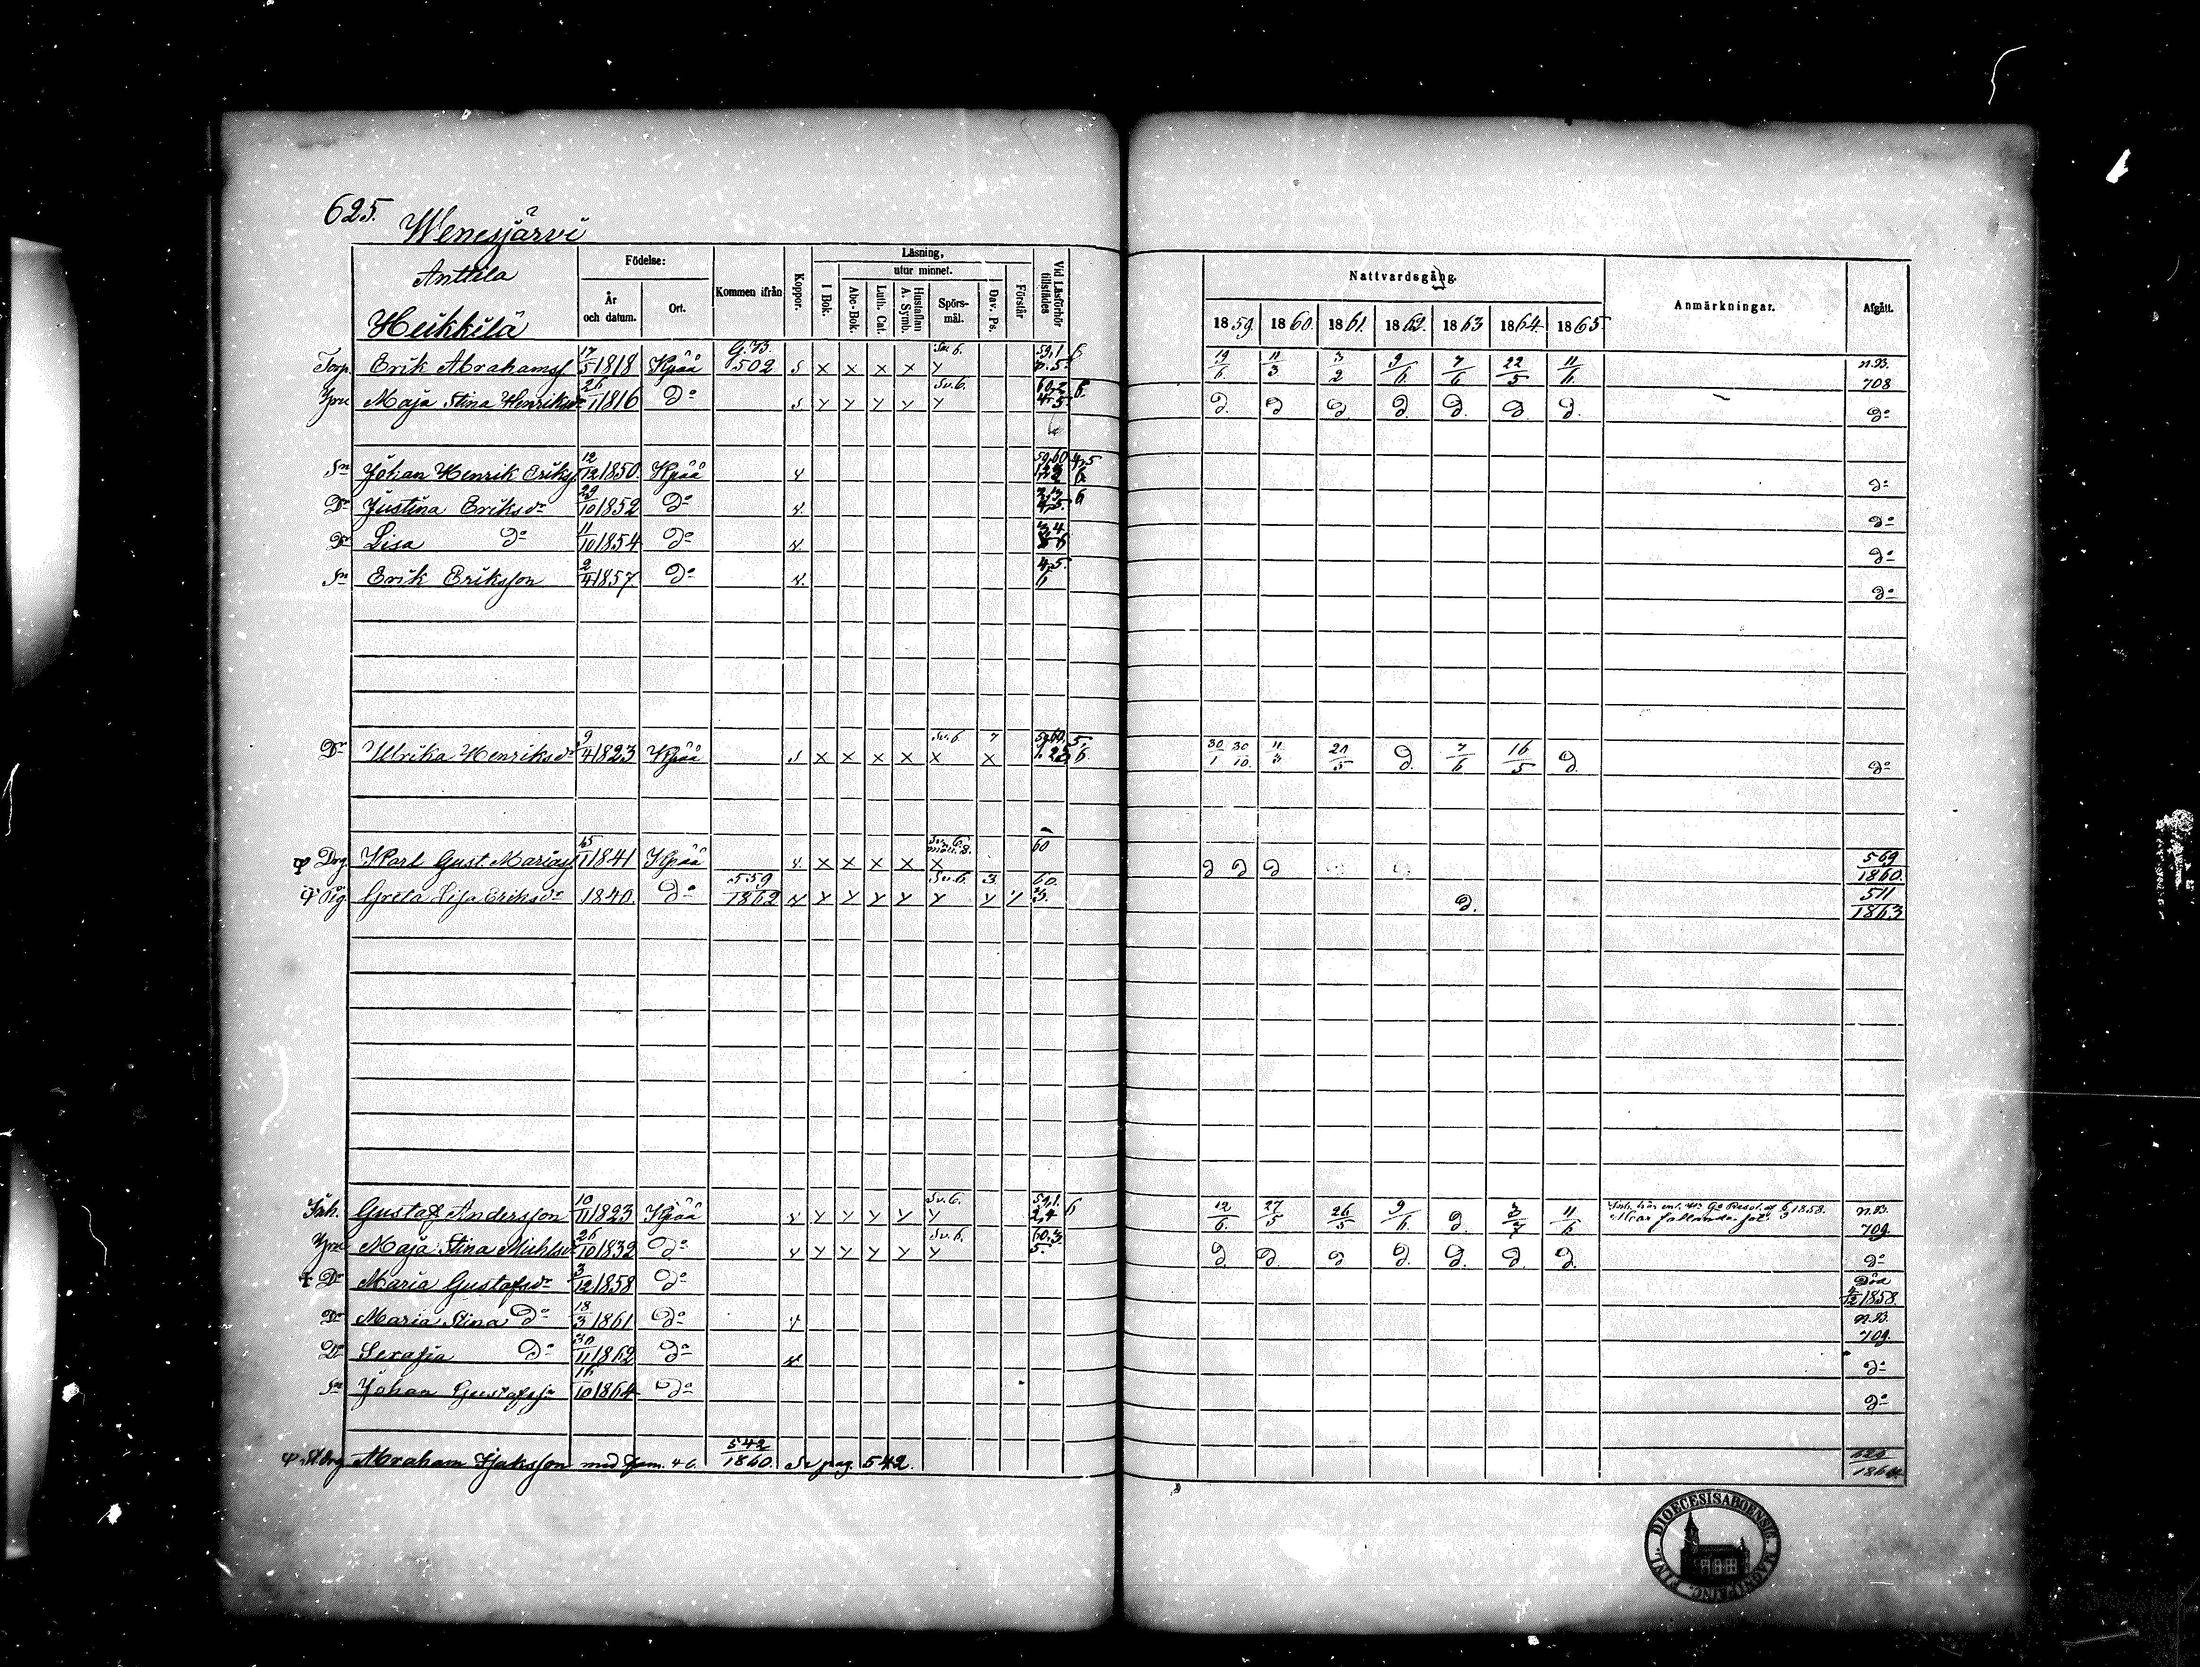 625.
Wenesjärvi
Anttila
Heikkilä
Födelse:
År och datum.
Ort.
Kommen ifrån
Koppor.
Läsning,
utur minnet.
I Bok.
Abc-Bok
Luth. Cat.
Hustaflan A. Symb.
Spörs-mål.
Dav. Ps.
Förstår
Vid Läsförhör tillstädes
Nattvardsgång.
1859. 1860. 1861. 1862. 1863 1864. 1865
Anmärkningar.
Afgått.
Torp. Erik Abrahamss 17/5 1818 Kpää G.B. 502 s x x x x Sv. 6. y 19/6 11/3 3/2 9/6 7/6 22/5 11/6 n.B. 708
Hru Maja Stina Henriksdr 26/1 1816 Do s y y y y Sv. 6. y D. D D. D. D. D. D. Do
Sn Johan Henrik Eriks 12/12 1850. Kpää v Do
Dr Justina Eriksdr 29/10 1852 Do v. Do
Dr Lisa Do 11/10 1854 Do v. Do
Sn Erik Eriksson 2/4 1857. Do v. Do
Dr Ulrika Henriksdr 9/4 1823 Kpää s x x x x Sv. 6 x 7 x 30/1 30/10. 11/3 21/5 D. 7/6 16/5 D. Do
Drg Karl Gust. Mariass 15/1 1841 Kpää v. x x x x x 60 D D D 569/1860.
Pig Greta Lisa Eriksdr 1840. Do 559/1862 v y y y y Sv. 6. y 3. y y 60. 3. D. 511/1863
Inh. Gustaf Andersson 10/11 1823 Kpää v y y y y Sv. 6. y 59,1. 2,4 6 12/6. 27/5 26/5 9/6 D. 3/7 11/6 n.B. 709
Hru Maja Stina Michlsdr 26/10 1832 Do v y y y y Sv. 6. y 60.3. 5. D. D. D. D. D. D. D. Do
† Dr Maria Gustafsdr 3/12 1858 Do Död /12 1858.
Dr Maria Stina Do 18/3 1861 Do v n.B. 709.
Dr Serafia Do 30/11 1862 Do v Do
Sn Johan Gustafss 16/10 1864 Do Do
Abraham Isaksson med fam. 542/1860. Se pag. 542.
DIOECESIS ABOENSIS. MAGNI PRINC. FINL.